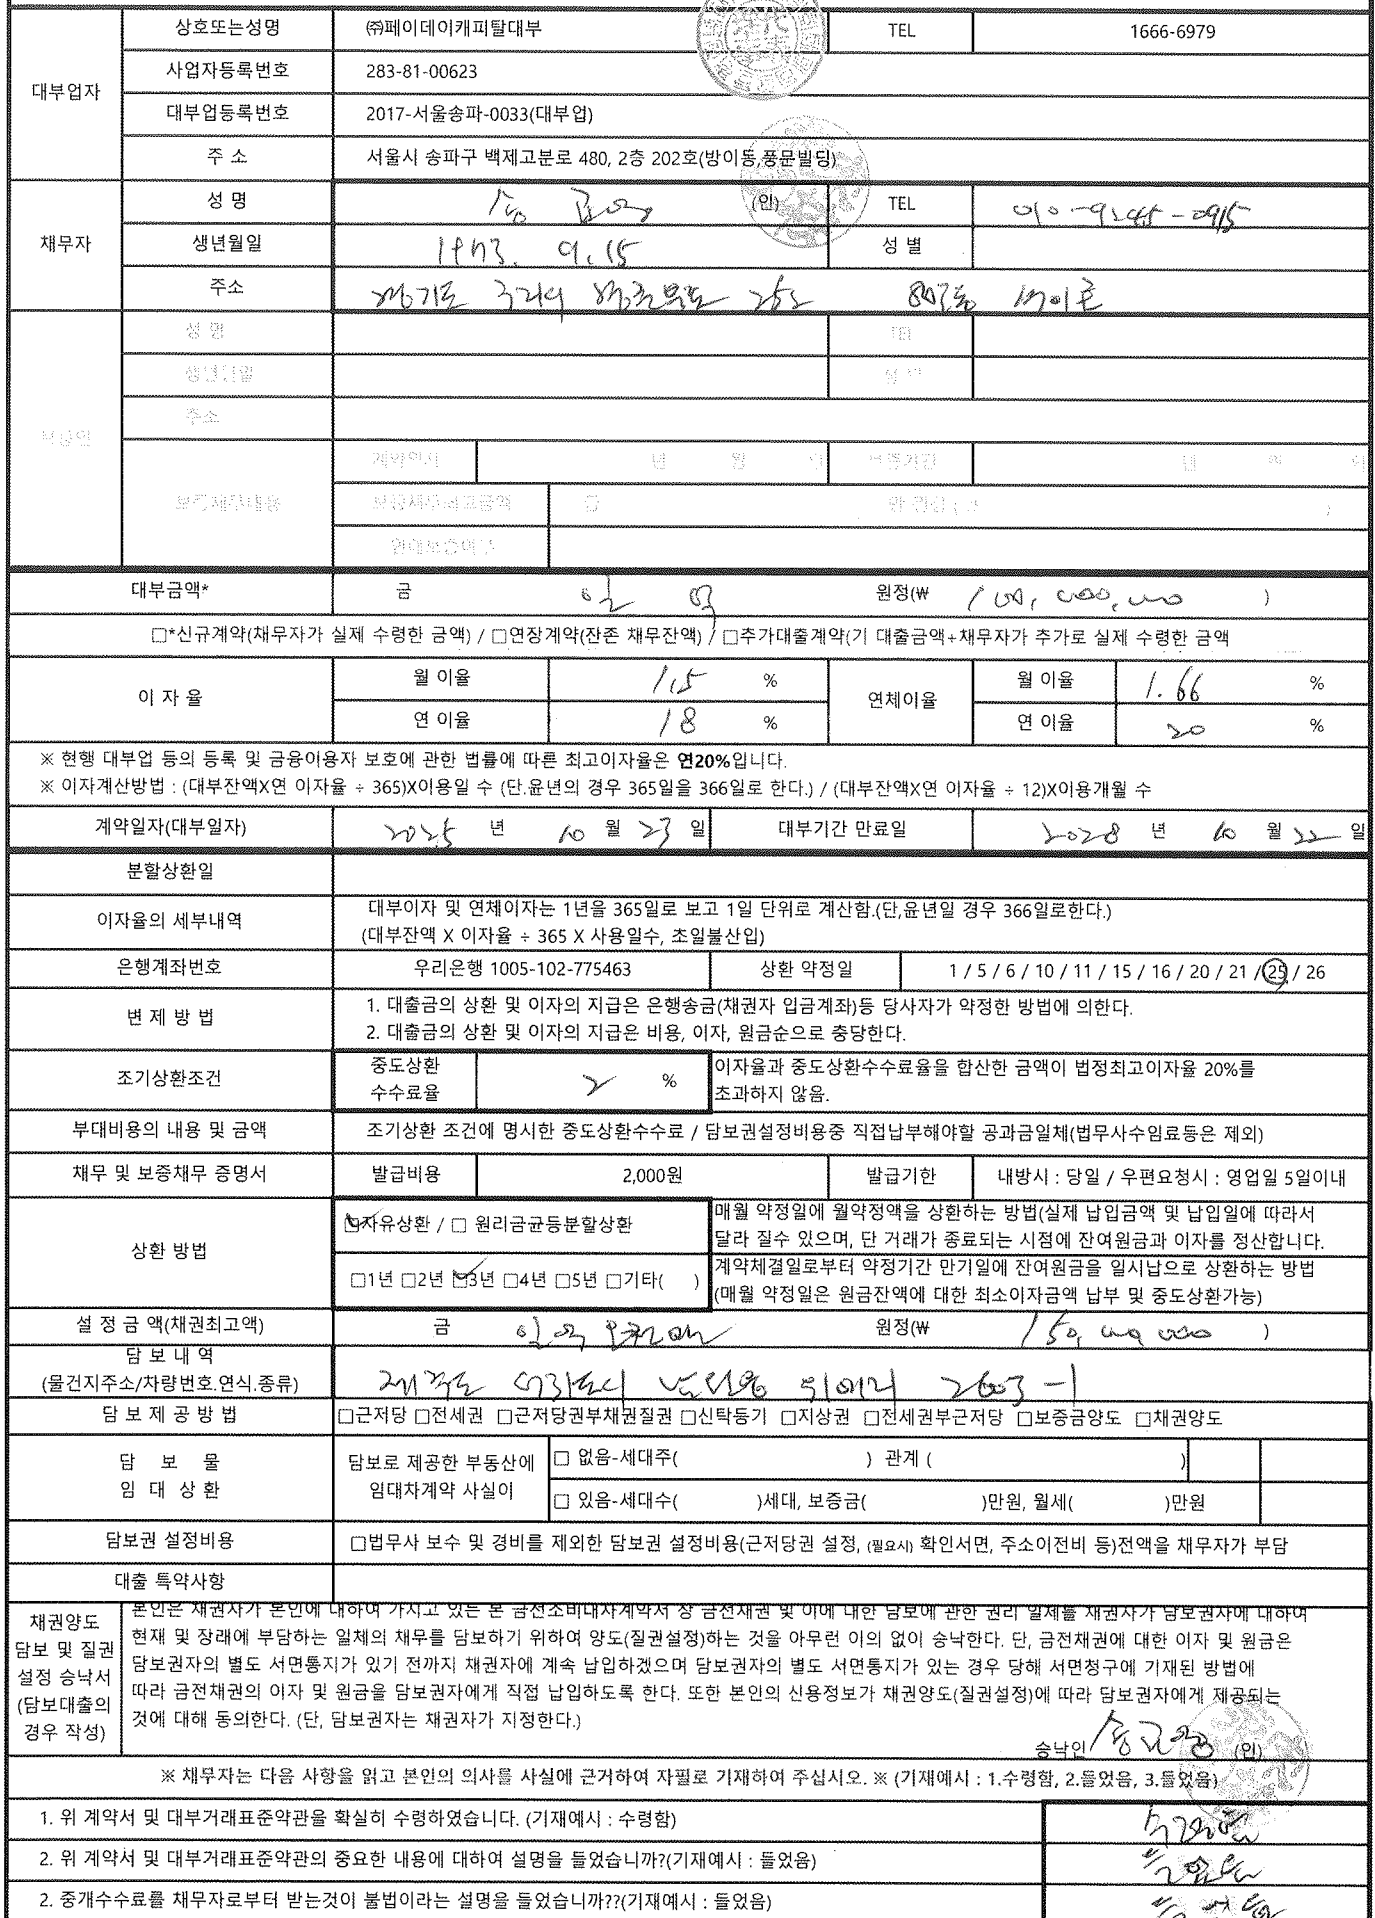 대부업자
상호또는성명 ㈜페이데이캐피탈대부 TEL 1666-6979
사업자등록번호 283-81-00623
대부업등록번호 2017-서울송파-0033(대부업)
주 소 서울시 송파구 백제고분로 480, 2층 202호(방이동,풍문빌딩)
채무자
성 명 (인) TEL 010-9245-0915
생년월일 1973. 9.15 성 별
주소 경기도 구리시 252
성 명 TEL
생년월일
주소
대부금액* 금 일 억 원정(₩ 100,000,000 )
□*신규계약(채무자가 실제 수령한 금액) / □연장계약(잔존 채무잔액) / □추가대출계약(기 대출금액+채무자가 추가로 실제 수령한 금액
이 자 율 월 이율 1.5 % 연체이율 월 이율 1.66 %
연 이율 18 % 연 이율 20 %
※ 현행 대부업 등의 등록 및 금융이용자 보호에 관한 법률에 따른 최고이자율은 연20%입니다.
※ 이자계산방법 : (대부잔액X연 이자율 ÷ 365)X이용일 수 (단.윤년의 경우 365일을 366일로 한다.) / (대부잔액X연 이자율 ÷ 12)X이용개월 수
계약일자(대부일자) 2025 년 10 월 23 일 대부기간 만료일 2028 년 10 월 22 일
분할상환일
이자율의 세부내역 대부이자 및 연체이자는 1년을 365일로 보고 1일 단위로 계산함.(단,윤년일 경우 366일로한다.)
(대부잔액 X 이자율 ÷ 365 X 사용일수, 초일불산입)
은행계좌번호 우리은행 1005-102-775463 상환 약정일 1 / 5 / 6 / 10 / 11 / 15 / 16 / 20 / 21 / 25 / 26
변 제 방 법 1. 대출금의 상환 및 이자의 지급은 은행송금(채권자 입금계좌)등 당사자가 약정한 방법에 의한다.
2. 대출금의 상환 및 이자의 지급은 비용, 이자, 원금순으로 충당한다.
조기상환조건 중도상환 수수료율 2 % 이자율과 중도상환수수료율을 합산한 금액이 법정최고이자율 20%를
초과하지 않음.
부대비용의 내용 및 금액 조기상환 조건에 명시한 중도상환수수료 / 담보권설정비용중 직접납부해야할 공과금일체(법무사수임료등은 제외)
채무 및 보증채무 증명서 발급비용 2,000원 발급기한 내방시 : 당일 / 우편요청시 : 영업일 5일이내
상환 방법 □자유상환 / □ 원리금균등분할상환 매월 약정일에 월약정액을 상환하는 방법(실제 납입금액 및 납입일에 따라서
달라 질수 있으며, 단 거래가 종료되는 시점에 잔여원금과 이자를 정산합니다.
□1년 □2년 □3년 □4년 □5년 □기타( ) 계약체결일로부터 약정기간 만기일에 잔여원금을 일시납으로 상환하는 방법
(매월 약정일은 원금잔액에 대한 최소이자금액 납부 및 중도상환가능)
설 정 금 액(채권최고액) 금 일억 오천만 원정(₩ 150,000,000 )
담 보 내 역
(물건지주소/차량번호.연식.종류) 제주도 서귀포시 남원읍 위미리 2603-1
담 보 제 공 방 법 □근저당 □전세권 □근저당권부채권질권 □신탁등기 □지상권 □전세권부근저당 □보증금양도 □채권양도
담 보 물
임 대 상 환 담보로 제공한 부동산에 임대차계약 사실이 □ 없음-세대주( ) 관계 ( )
□ 있음-세대수( )세대, 보증금( )만원, 월세( )만원
담보권 설정비용 □법무사 보수 및 경비를 제외한 담보권 설정비용(근저당권 설정, (필요시) 확인서면, 주소이전비 등)전액을 채무자가 부담
대출 특약사항
채권양도
담보 및 질권
설정 승낙서
(담보대출의
경우 작성)
본인은 채권자가 본인에 대하여 가지고 있는 본 금전소비대차계약서 상 금전채권 및 이에 대한 담보에 관한 권리 일체를 채권자가 담보권자에 대하여
현재 및 장래에 부담하는 일체의 채무를 담보하기 위하여 양도(질권설정)하는 것을 아무런 이의 없이 승낙한다. 단, 금전채권에 대한 이자 및 원금은
담보권자의 별도 서면통지가 있기 전까지 채권자에 계속 납입하겠으며 담보권자의 별도 서면통지가 있는 경우 당해 서면청구에 기재된 방법에
따라 금전채권의 이자 및 원금을 담보권자에게 직접 납입하도록 한다. 또한 본인의 신용정보가 채권양도(질권설정)에 따라 담보권자에게 제공되는
것에 대해 동의한다. (단, 담보권자는 채권자가 지정한다.)
승낙인 (인)
※ 채무자는 다음 사항을 읽고 본인의 의사를 사실에 근거하여 자필로 기재하여 주십시오. ※ (기재예시 : 1.수령함, 2.들었음, 3.들었음)
1. 위 계약서 및 대부거래표준약관을 확실히 수령하였습니다. (기재예시 : 수령함) 수령함
2. 위 계약서 및 대부거래표준약관의 중요한 내용에 대하여 설명을 들었습니까?(기재예시 : 들었음) 들었음
2. 중개수수료를 채무자로부터 받는것이 불법이라는 설명을 들었습니까??(기재예시 : 들었음)